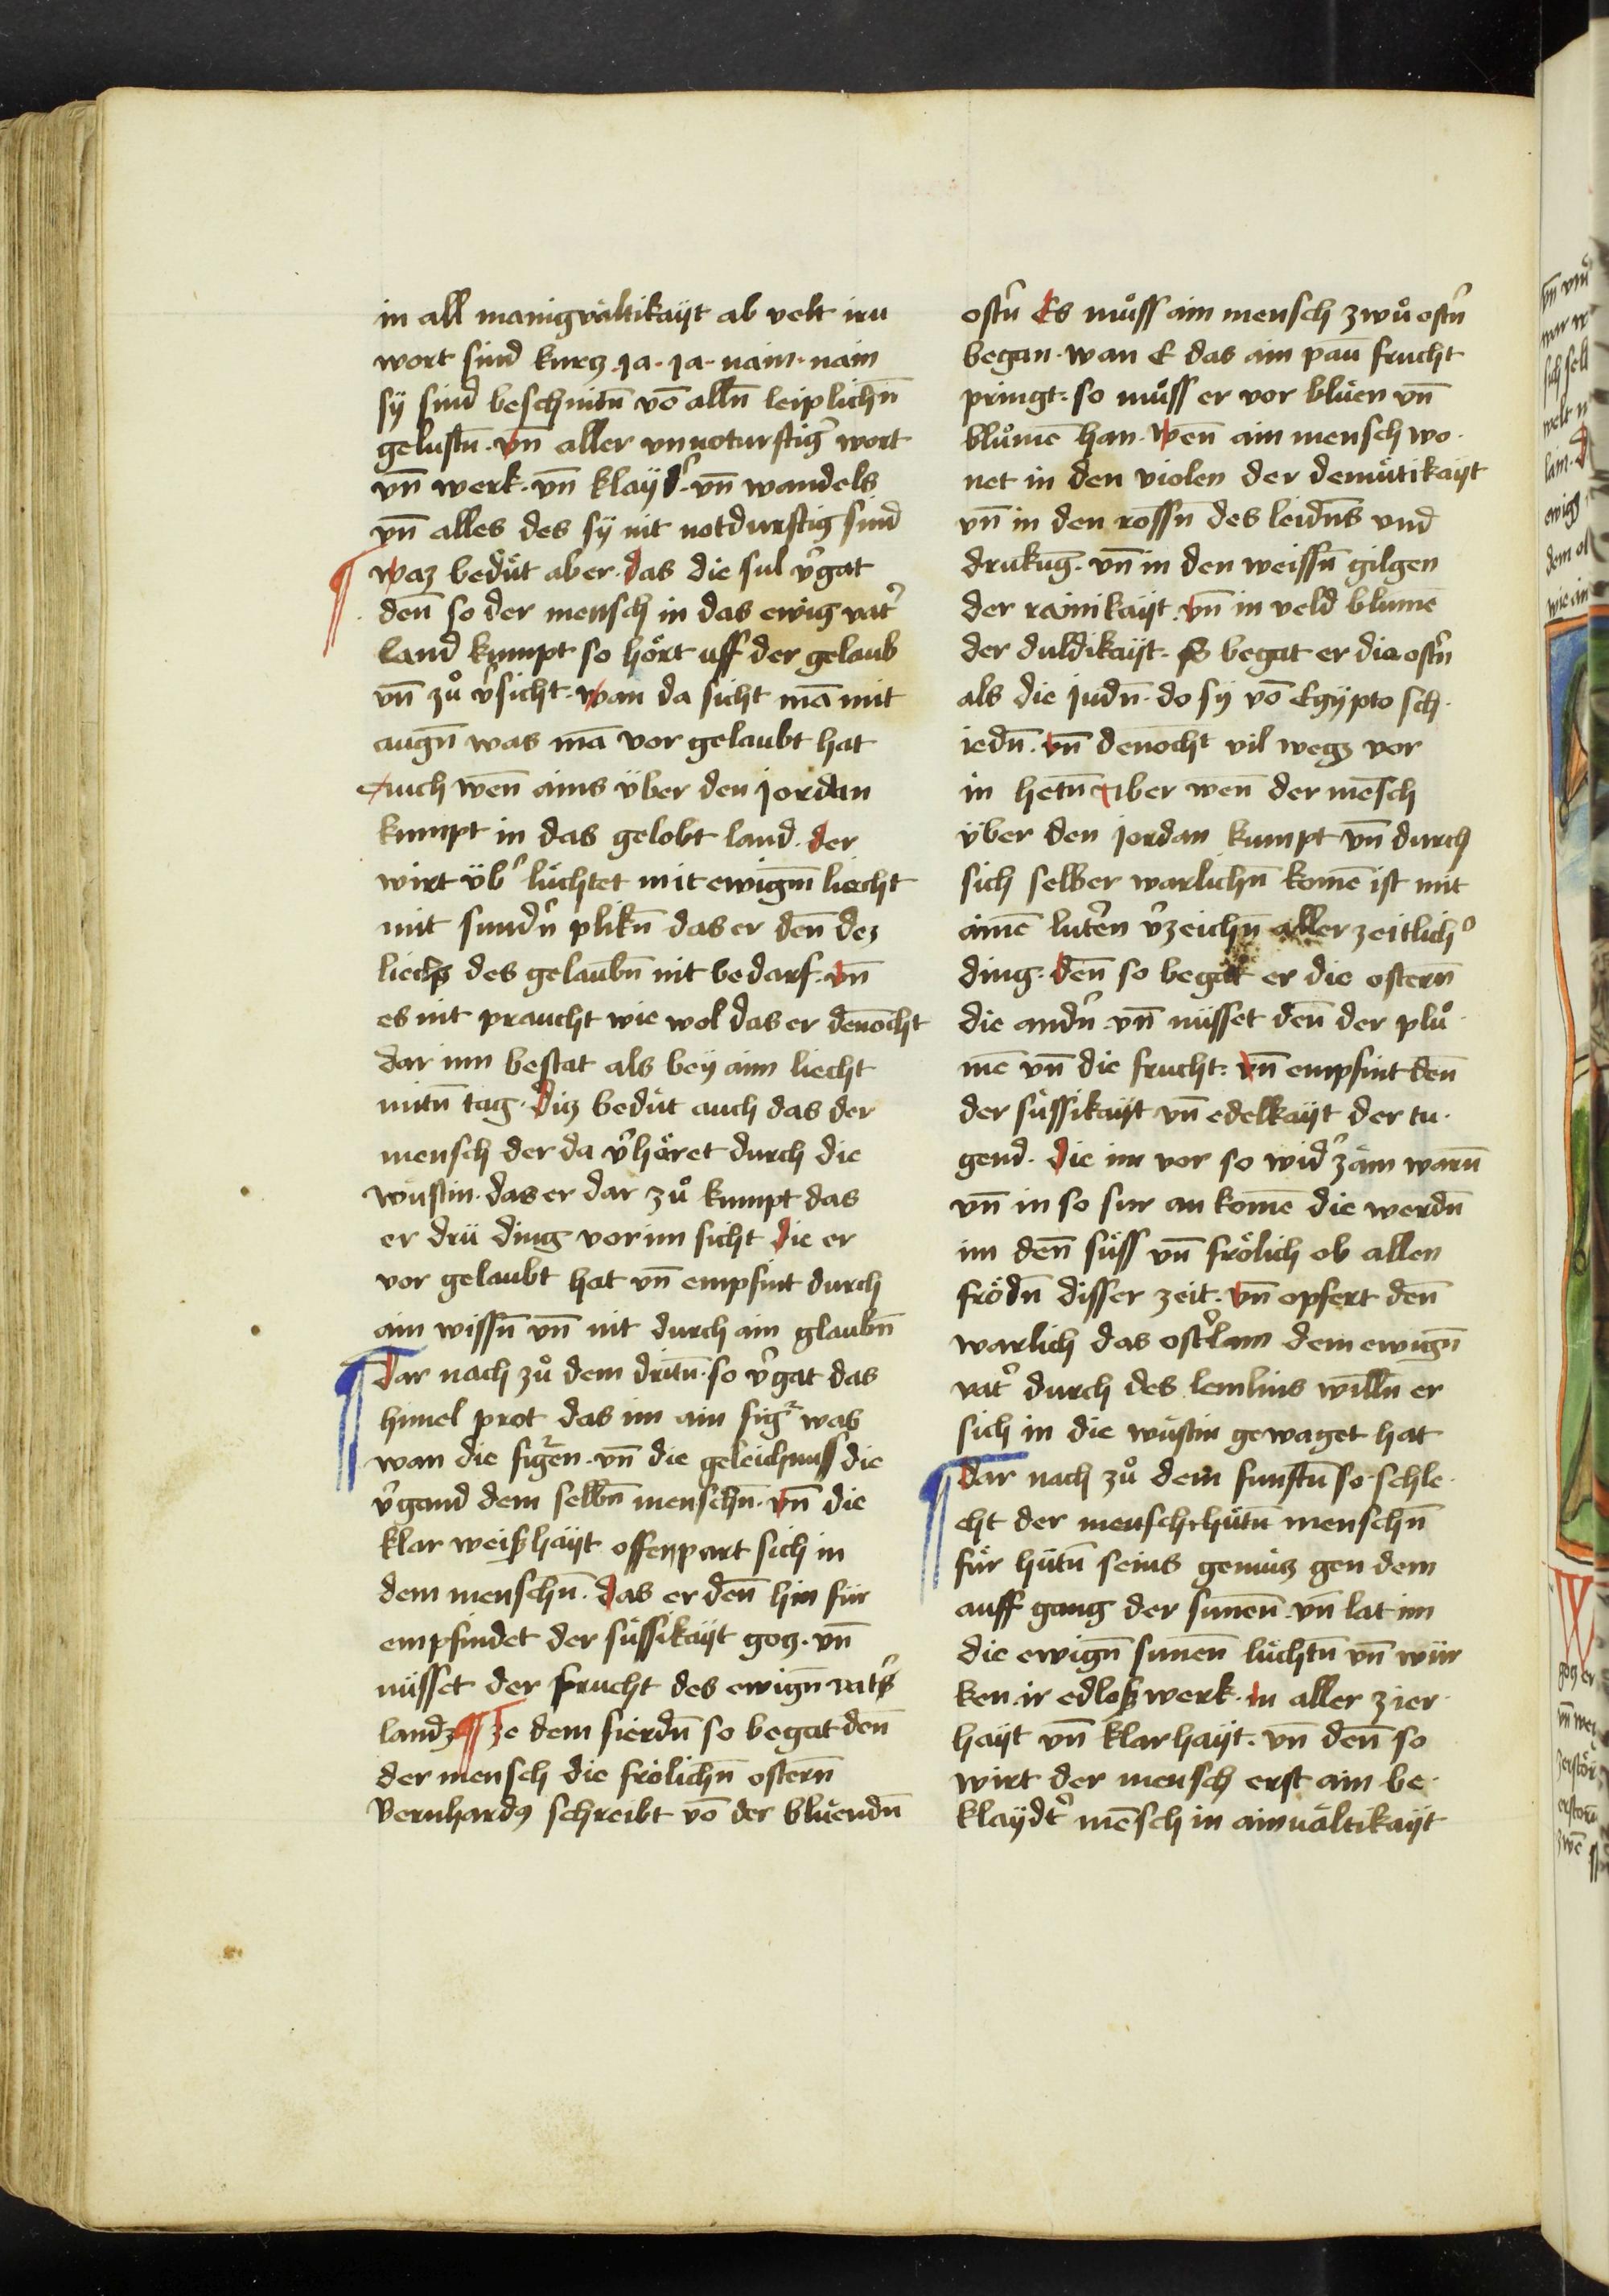 in all manigvältikaÿt ab velt irn
wort sind kurcz · ja · ja · nain · nain
sÿ sind beschnitn̄ vō alln̄ leiplichn̄
gelustn̄ · vn̄ aller vnnoturftig᷑ wort
vn̄ werk · vn̄ klaÿd᷑ · vn̄ wandels
vn̄ alles des sÿ nit notdurftig sind
¶ waz bedüt aber · das die sul v᷑gat
den̄ so der mensch in das ewig vat᷑
land kumpt so hört uff der gelaub
vn̄ zů v᷑sicht · wan da sicht mā mit
augn̄ was mā vor gelaubt hat
auch wen̄ ains über den jordan
kumpt in das gelobt land · der
wirt üb᷑ lüchtet mit ewigm̄ liecht
mit sund᷑n plikn̄ das er den̄ dez
liechß des gelaubn̄ nit bedarf · vn̄
es nit praucht wie wol das er denocht
dar inn bestat als beÿ aim liecht
mitn̄ tag · diz bedüt auch das der
mensch der da v᷑häret durch die
wüstin · das er dar zů kumpt das
er drü ding vor im sicht die er
vor gelaubt hat vn̄ empfint durch
ain wissn̄ vn̄ nit durch ain glaubn̄
¶ dar nach zů dem dritn̄ · so v᷑gat das
himel prot das im ain fig᷑ was
wan die figen · vn̄ die geleichnuss die
v᷑gand dem selbn̄ menschn̄ · vn̄ die
klar weißhaÿt offenpart sich in
dem menschn̄ · das er den̄ hin für
empfindet der süssikaÿt gocz · vn̄
nüsset der frucht des ewign̄ vat᷑s
landz ¶ ze dem fierdn̄ so begat den̄
der mensch die frölichn̄ ostern̄
Bernhardꝰ schreibt vō der blüendn̄
ost᷑n Es můss ain mensch zwů ost᷑n
began · wan E das ain paū frucht
pringt · so můss er vor blüen vn̄
blůmē han · wen̄ ain mensch wo·
net in den violen der demütikaÿt
vn̄ in den rossn̄ des leidn̄s und
drukūg · vn̄ in den weissn̄ gilgen
der rainikaÿt · vn̄ in veld blumē
der duldikaÿt · so begat er die ost᷑n
als die judn̄ · do sÿ vō Egÿpto sch·
iedn̄ · vn̄ denocht vil wegz vor
in hetn̄ aber wen̄ der mensch
über den jordan kumpt vn̄ durch
sich selber warlichn̄ komē ist mit
aimē lutern v᷑zeichn̄ aller zeitlich᷑
ding · den̄ so begat er die ostern̄
die and᷑n · vn̄ nüsset den̄ der plů·
mē vn̄ die frucht · vn̄ empfint den̄
der süssikaÿt vn̄ edelkaÿt der tu·
gend · die im vor so wid᷑ zäm warn̄
vn̄ in so sur an komē die werdn̄
im den̄ süss vn̄ frölich ob allen
frödn̄ disser zeit · vn̄ opfert den̄
warlich das ost᷑lam dem ewign̄
vat᷑ durch des lemlins willn̄ er
sich in die wüstin gewaget hat
¶ dar nach zů dem funftn̄ so · schle·
cht der mensch hütn̄ menschn̄
für hütn̄ seins gemütz gen dem
auff gang der sunen̄ · vn̄ lat im
die ewign̄ sunen̄ lüchtn̄ vn̄ wür
ken ir edloß werk · in aller zier·
haÿt vn̄ klarhaÿt · vn̄ den̄ so
wirt der mensch erst ain be·
klaÿdt᷑ mēsch in ainvältikaÿt